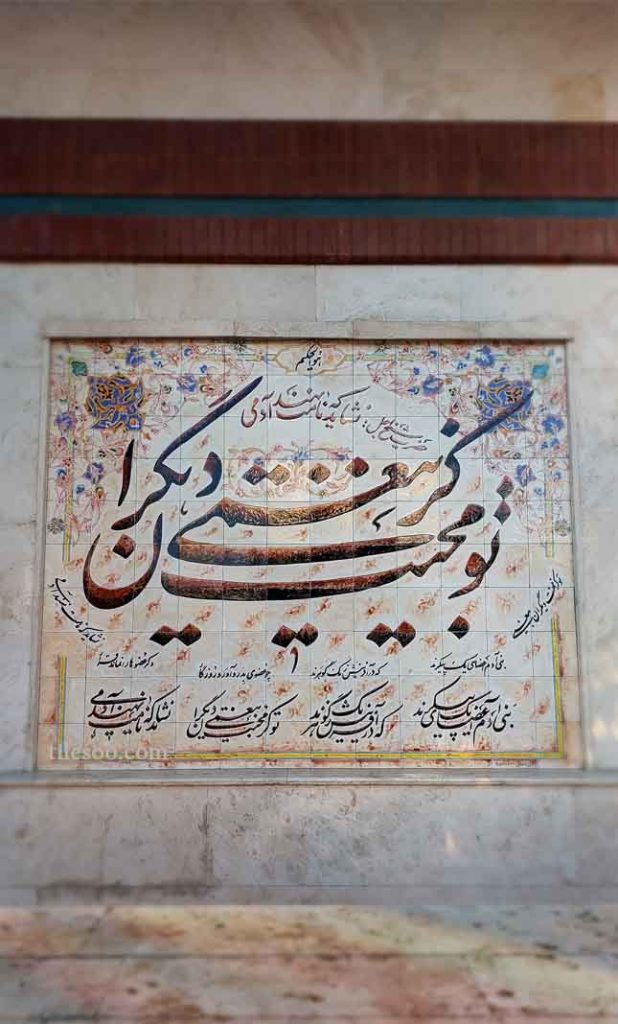 هوالحکیم
نشاید که نامت نهند آدمی
تو کز محنت دیگران بیغمی
تو کز محنت دیگران بیغمی
نشاید که نامت نهند آدمی
بنی آدم اعضای یک پیکرند که در آفرینش ز یک گوهرند چو عضوی بدرد آورد روزگار دگر عضوها را نماند قرار
بنی آدم اعضای یک پیکرند که در آفرینش ز یک گوهرند تو کز محنت دیگران بیغمی نشاید که نامت نهند آدمی
tilesoo.com